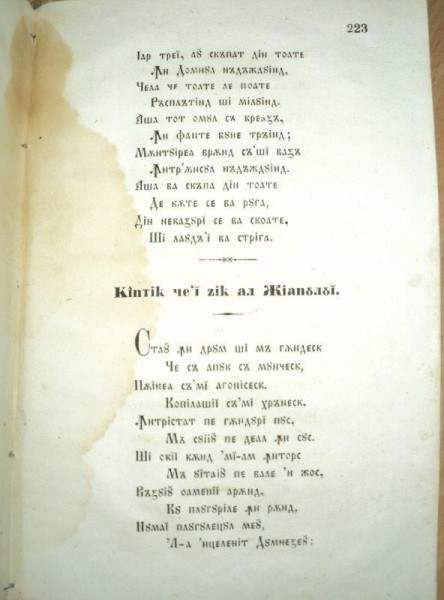 223
Іар треї, аȣ скъпат дін тоате
Ꙟн Домнȣл нъдъждȣінд,
Чела че тоате ле поате
Ръсплътінд ші мілȣінд.
Аша тот омȣл съ креазъ,
Ꙟн фапте бȣне тръінд;
Мѫнтȣіреа врѫнд съ'ші вазъ
Ꙟнтр'ѫнсȣл нъдъждȣінд.
Аша ва скъпа дін тоате
Де кѫте се ва рȣга,
Дін неказȣрї се ва скоате,
Ші лаȣдъ'ї ва стріга.
Кîптік че'ї zік ал Жіапȣлȣї.
Стаȣ ꙟн дрȣм ші мъ гѫндеск
Че съ апȣк съ мȣнческ,
Пѫінеа съ'мї агонісеск.
Копілашії съ'мї хрънеск.
Ꙟнтрістат пе гѫндȣрї пȣс,
Мъ сȣіїȣ пе деал ꙟн сȣс.
Ші окії кѫнд 'мї-ам ꙟнторс
Мъ ȣїтаіȣ пе вале 'н жос,
Възȣіȣ оаменії арѫнд,
Кȣ плȣгȣріле ꙟн рѫнд,
Нȣмаї плȣгȣлецȣл меȣ,
'Л-а 'нцеленіт Дȣмнезеȣ: